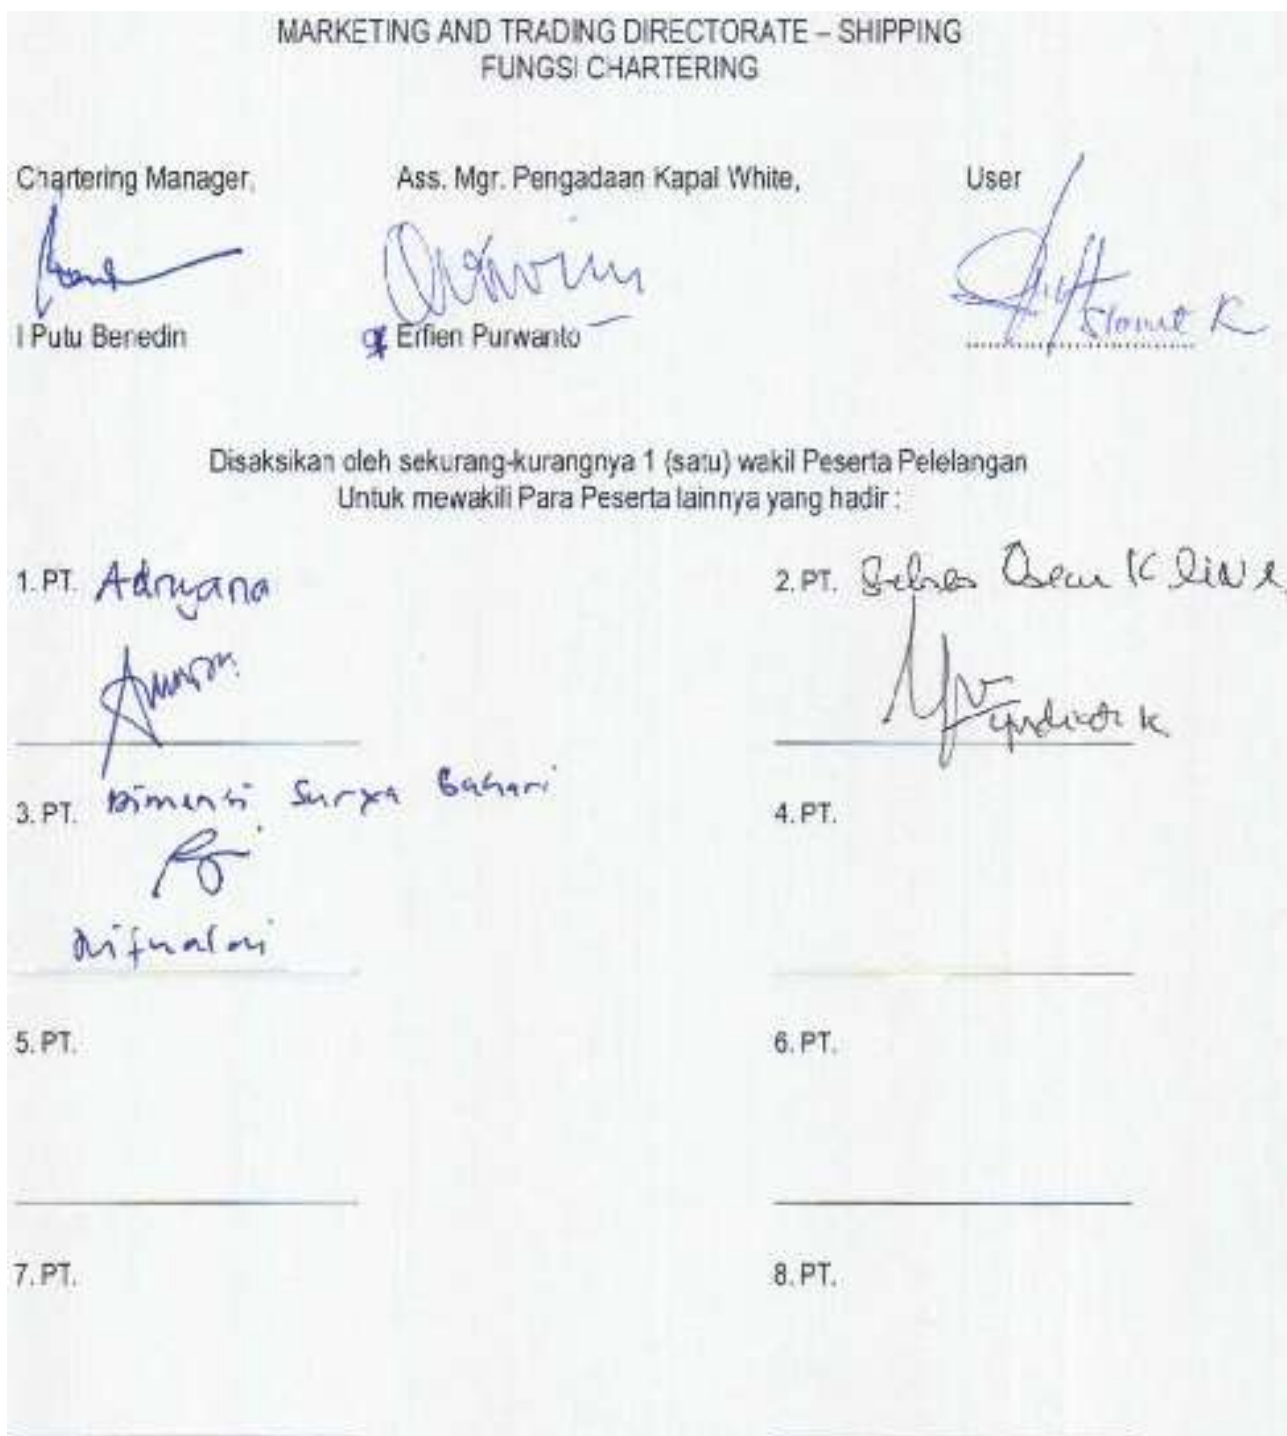 MARKETING AND TRADING DIRECTORATE – SHIPPING
FUNGSI CHARTERING
Chartering Manager, Ass. Mgr. Pengadaan Kapal White, User
I Putu Benedin Erfien Purwanto Slamet R
Disaksikan oleh sekurang-kurangnya 1 (satu) wakil Peserta Pelelangan
Untuk mewakili Para Peserta lainnya yang hadir :
1. PT. Adnyana 2. PT.
3. PT. Dimensi Surya Bahari 4. PT.
5. PT. 6. PT.
7. PT. 8. PT.